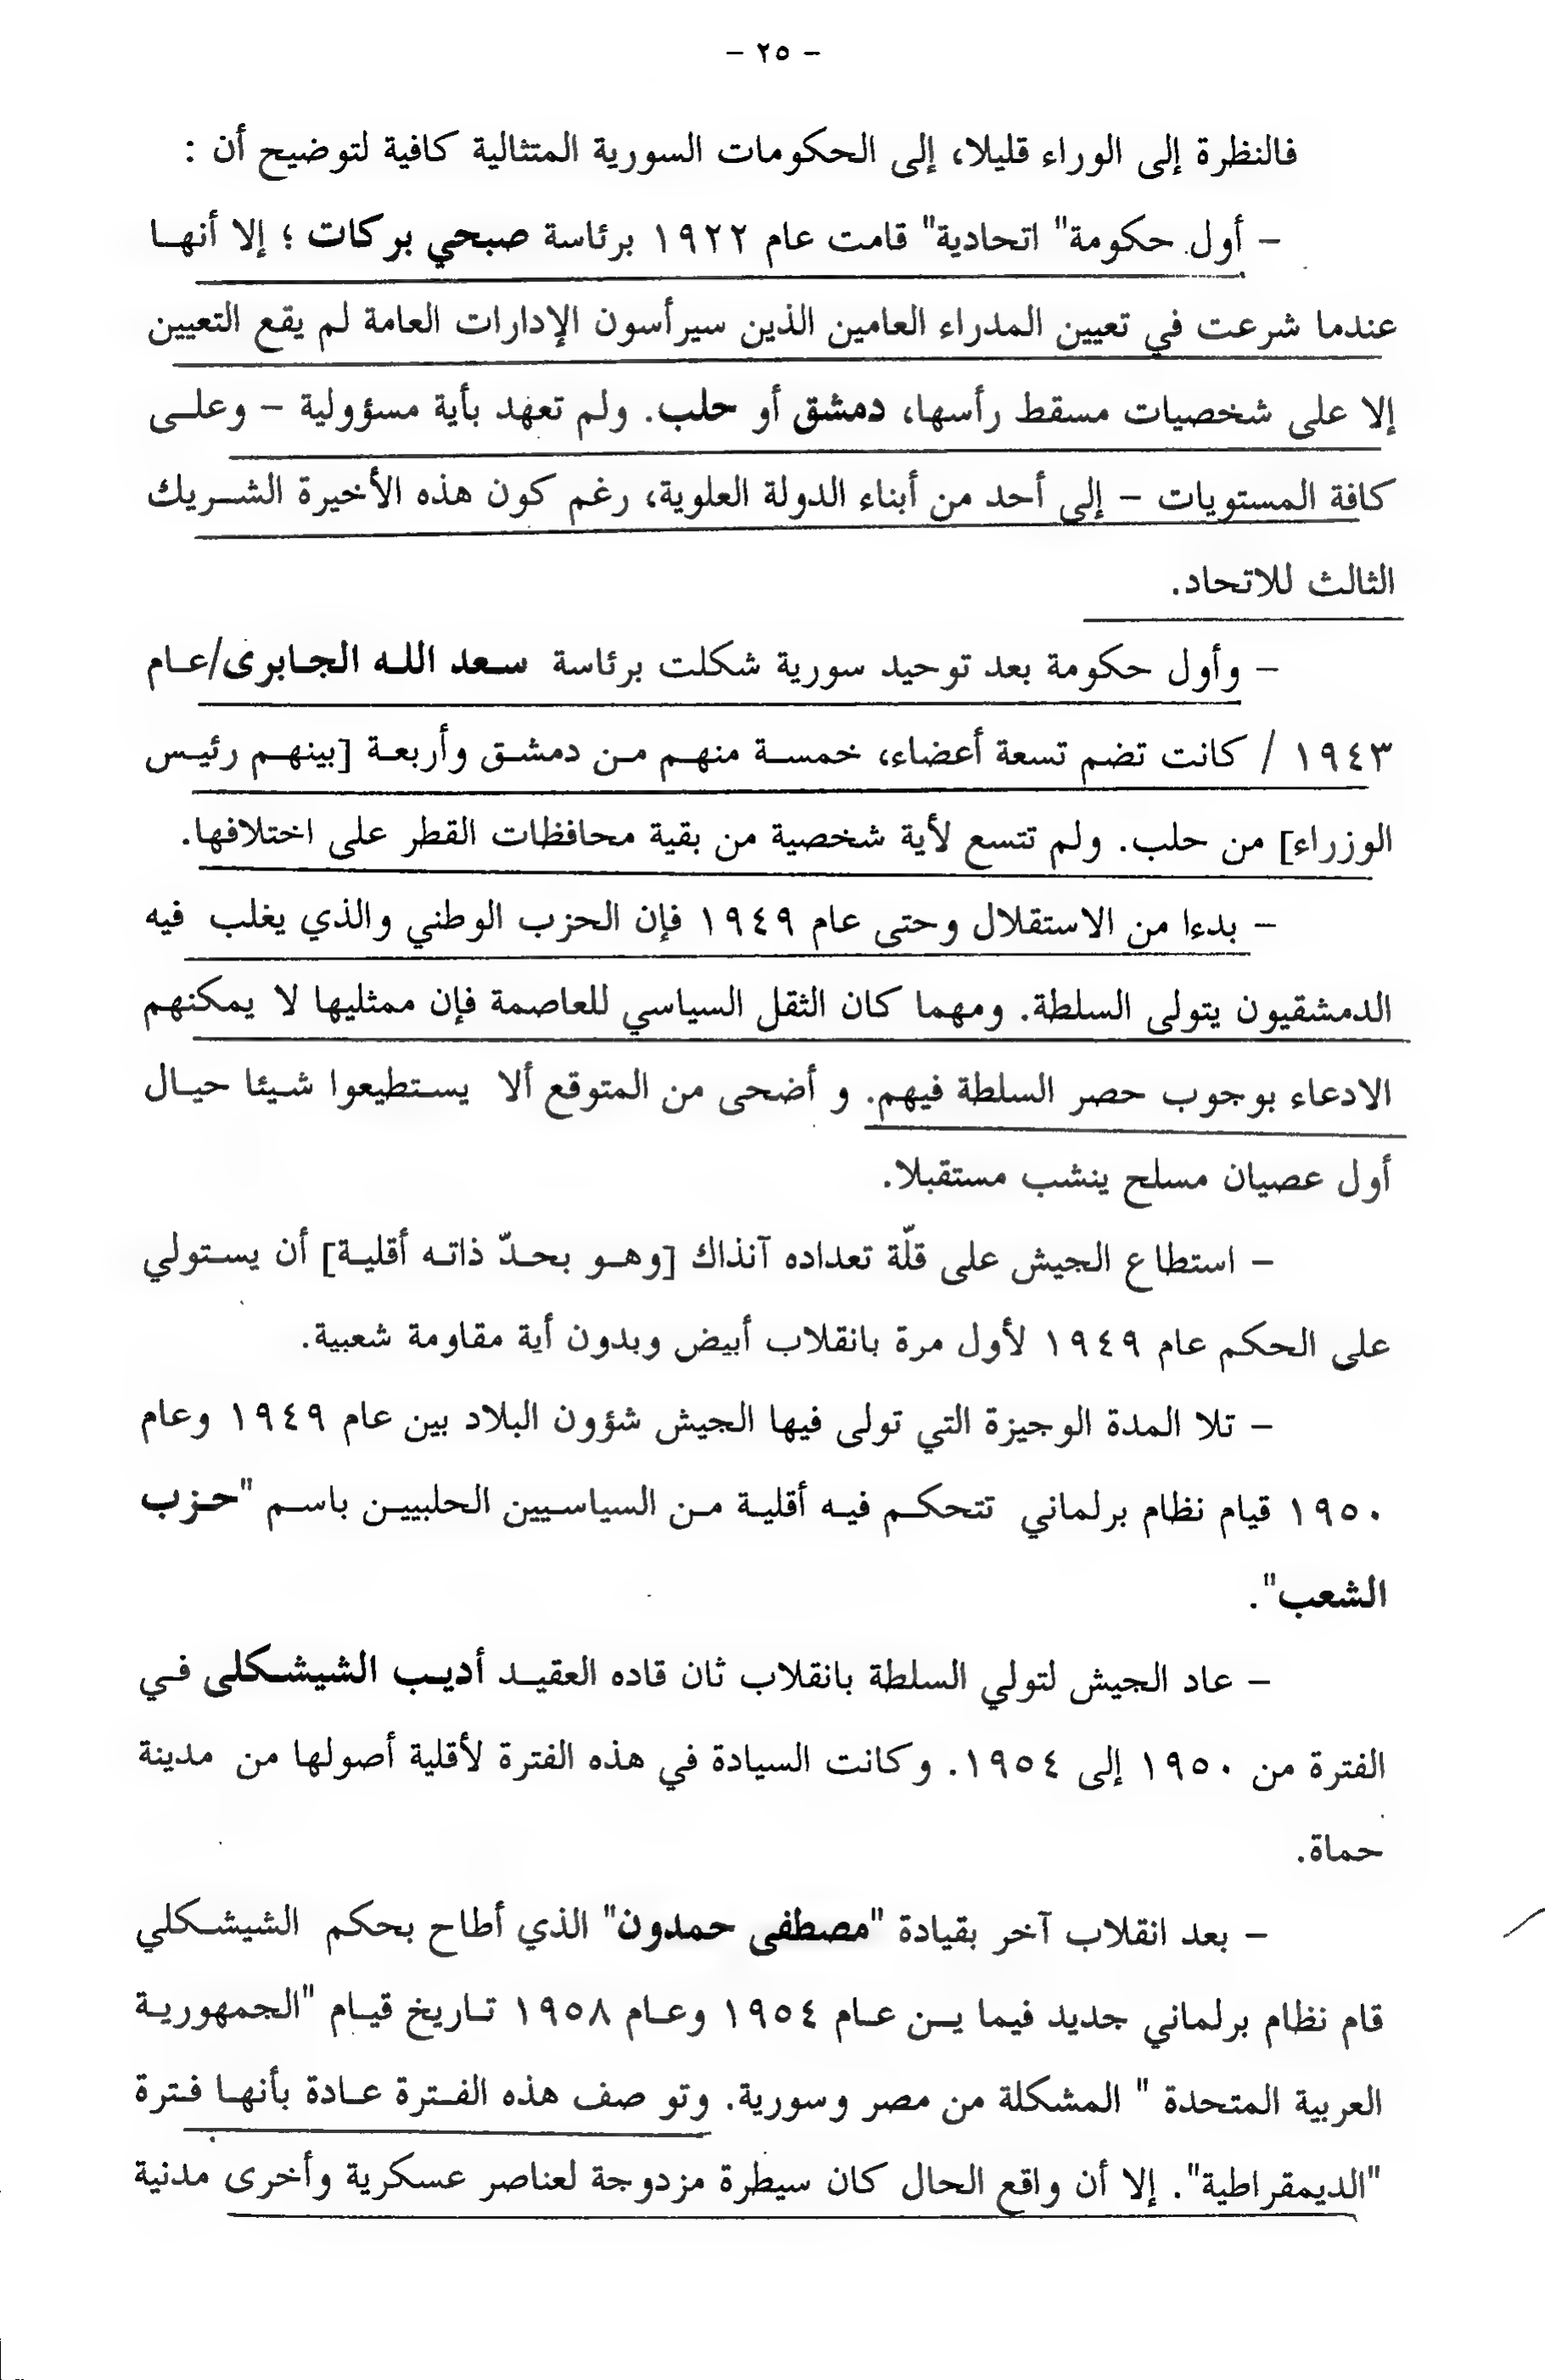 - ٢٥ -
فالنظرة إلى الوراء قليلا، إلى الحكومات السورية المتثالية كافية لتوضيح أن :
- أول حكومة" اتحادية" قامت عام ١٩٢٢ برئاسة صبحي بركات ؛ إلا أنها
عندما شرعت في تعيين المدراء العامين الذين سيرأسون الإدارات العامة لم يقع التعيين
إلا على شخصيات مسقط رأسها، دمشق أو حلب. ولم تعهد بأية مسؤولية - وعلى
كافة المستويات - إلى أحد من أبناء الدولة العلوية، رغم كون هذه الأخيرة الشريك
الثالث للاتحاد.
- وأول حكومة بعد توحيد سورية شكلت برئاسة سعد الله الجابرى/عام
١٩٤٣ / كانت تضم تسعة أعضاء، خمسة منهم من دمشق وأربعة [بينهم رئيس
الوزراء] من حلب. ولم تتسع لأية شخصية من بقية محافظات القطر على اختلافها.
- بدءا من الاستقلال وحتى عام ١٩٤٩ فإن الحزب الوطني والذي يغلب فيه
الدمشقيون يتولى السلطة. ومهما كان الثقل السياسي للعاصمة فإن ممثليها لا يمكنهم
الادعاء بوجوب حصر السلطة فيهم. و أضحى من المتوقع ألا يستطيعوا شيئا حيال
أول عصيان مسلح ينشب مستقبلا.
- استطاع الجيش على قلّة تعداده آنذاك [وهو بحدّ ذاته أقلية] أن يستولي
على الحكم عام ١٩٤٩ لأول مرة بانقلاب أبيض وبدون أية مقاومة شعبية.
- تلا المدة الوجيزة التي تولى فيها الجيش شؤون البلاد بين عام ١٩٤٩ وعام
١٩٥٠ قيام نظام برلماني تتحكم فيه أقلية من السياسيين الحلبيين باسم "حزب
الشعب".
- عاد الجيش لتولي السلطة بانقلاب ثان قاده العقيد أديب الشيشكلى في
الفترة من ١٩٥٠ إلى ١٩٥٤. وكانت السيادة في هذه الفترة لأقلية أصولها من مدينة
حماة.
- بعد انقلاب آخر بقيادة "مصطفى حمدون" الذي أطاح بحكم الشيشكلي
قام نظام برلماني جديد فيما ين عام ١٩٥٤ وعام ١٩٥٨ تاريخ قيام "الجمهورية
العربية المتحدة " المشكلة من مصر وسورية. وتو صف هذه الفترة عادة بأنها فترة
"الديمقراطية". إلا أن واقع الحال كان سيطرة مزدوجة لعناصر عسكرية وأخرى مدنية